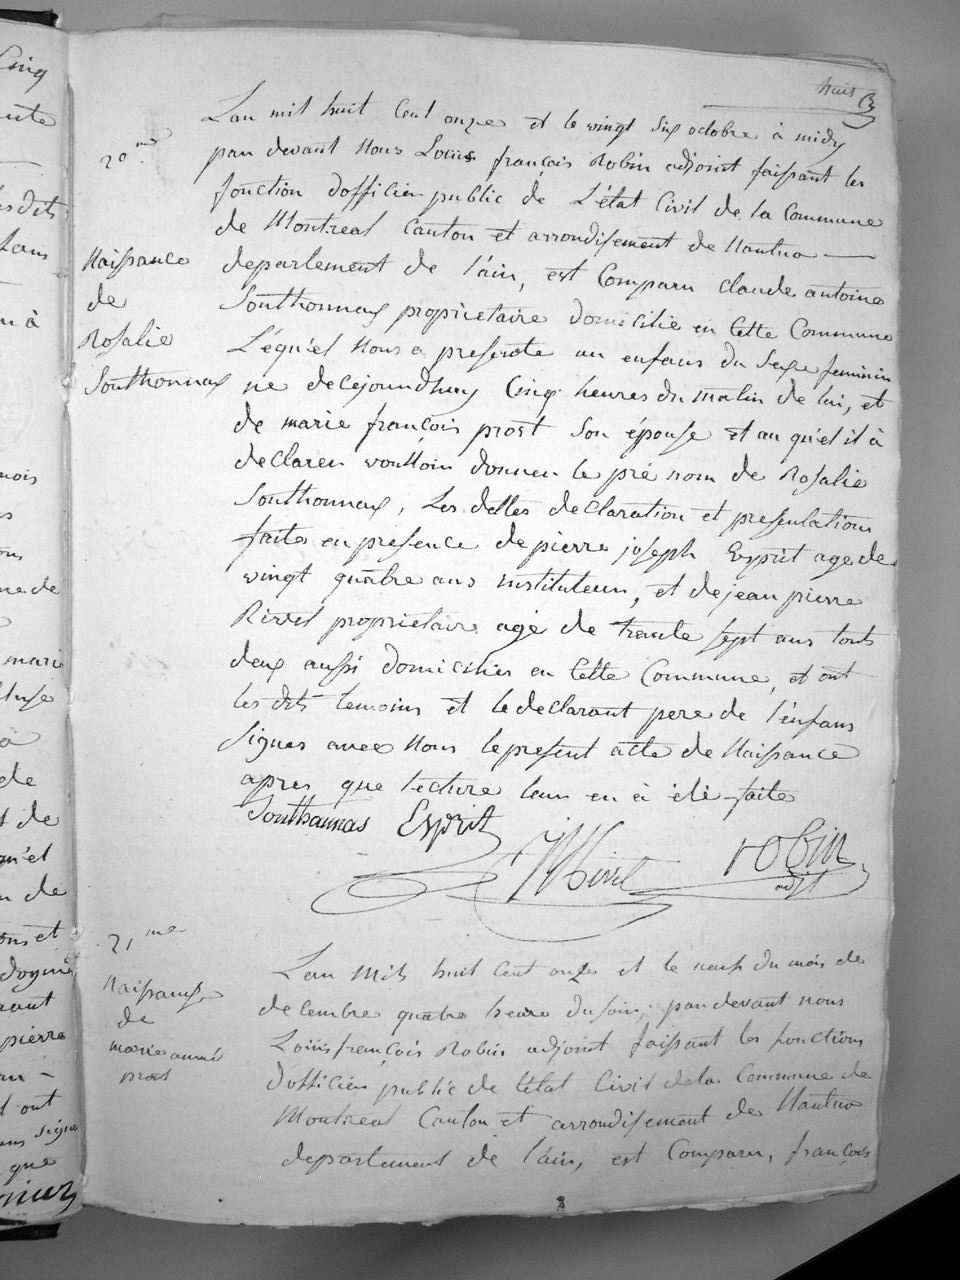 huit
20me
Naissance
de
Rosalie
Southonnax
Lan mil huit Cent onze et le vingt six octobre à midy
par devant Nous Louis françois Robin adjoint faissant les
fonction d'officier public de L'état Civil de la Commune
de Montreal Canton et arrondissement de Nantua
departement de l'ain, est Comparu claude antoine
Southonnax propriétaire domicilié en Cette Commune
Lequ'el Nous a presenté un enfans du Sexe feminin
né de Cejourdhuy Cinq heures du matin de lui, et
de marie françois prost Son épouse et au qu'el il à
declarer voulloir donner le pré nom de Rosalie
Southonnax, Les dittes declaration et presentation
faites en presence de pierre joseph Esprit age de
vingt quatre ans instituteur, et de jean pierre
Rivet propriétaire agé de trente sept ans touts
deux aussi domiciliés en Cette Commune, et ont
les dits temoins et le declarant pere de l'enfans
Signés avec Nous le present acte de Naissance
apres que lecture leur en à été faite
Southannas Esprit
Rivet robin
adjt
21me
Naissance
de
marie anne
prost
Lan Mils huit Cent onze et le neuf du mois de
decembre quatre heure du soir, par devant nous
Louis françois Robin adjoint faissant les fonctions
d'officier public de l'état Civil de la Commune de
Montreal Canton et arrondissement de Nantua
departement de l'ain, est Comparu, françois
8